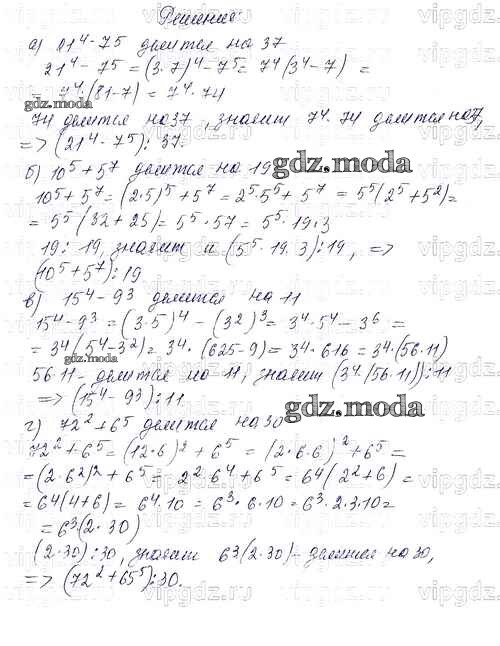 Решение:
а) 21⁴-7⁵ делится на 37
21⁴ - 7⁵ = (3·7)⁴-7⁵= 7⁴(3⁴-7) =
= 7⁴·(81-7) = 7⁴·74
gdz.moda
74 делится на 37, значит 7⁴·74 делится на 37,
=> (21⁴-7⁵):37.
б) 10⁵+5⁷ делится на 19
gdz.moda
10⁵+5⁷=(2·5)⁵+5⁷=2⁵·5⁵+5⁷ = 5⁵(2⁵+5²)=
= 5⁵(32+25)= 5⁵·57= 5⁵·19·3
19:19, значит и (5⁵·19·3):19, =>
(10⁵+5⁷):19
в) 15⁴-9³ делится на 11
15⁴-9³=(3·5)⁴-(3²)³=3⁴·5⁴-3⁶=
= 3⁴(5⁴-3²)= 3⁴·(625-9)=3⁴·616=3⁴(56·11)
gdz.moda
56·11- делится на 11, значит (3⁴(56·11)):11
=> (15⁴-9³):11
gdz.moda
г) 72²+6⁵ делится на 30
72²+6⁵=(12·6)²+6⁵= (2·6·6)²+6⁵=
=(2·6²)²+6⁵= 2²·6⁴+6⁵=6⁴(2²+6)=
=6⁴(4+6)= 6⁴·10 = 6³·6·10=6³·2·3·10=
= 6³(2·30)
(2·30):30, значит 6³(2·30)- делится на 30,
=> (72²+65⁵):30.
vipgdz.ru